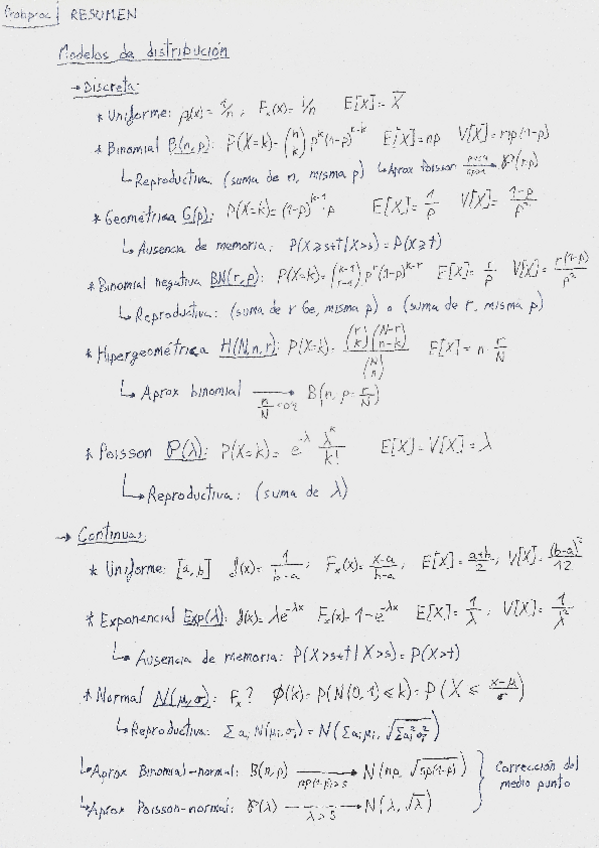 Probproc | RESUMEN
Modelos de distribución
→ Discreta:
* Uniforme: p(x) = 1/n ; Fx(x) = i/n E[X] = X̄
* Binomial B(n,p): P(X=k) = (n k) p^k (1-p)^(n-k) E[X] = np V[X] = np(1-p)
↳ Reproductiva (suma de n, misma p) ↳ Aprox Poisson → P(np)
* Geométrica G(p): P(X=k) = (1-p)^(k-1) · p E[X] = 1/p V[X] = (1-p)/p²
↳ Ausencia de memoria: P(X≥s+t | X>s) = P(X≥t)
* Binomial negativa BN(r,p): P(X=k) = (k-1 r-1) p^r (1-p)^(k-r) E[X] = r/p V[X] = r(1-p)/p²
↳ Reproductiva: (suma de r Ge, misma p) o (suma de r, misma p)
* Hipergeométrica H(N,n,r): P(X=k) = (r k)(N-r n-k)/(N n) E[X] = n · r/N
↳ Aprox binomial → B(n, p = r/N)
* Poisson P(λ): P(X=k) = e^-λ λ^k/k! E[X] = V[X] = λ
↳ Reproductiva: (suma de λ)
→ Continuas:
* Uniforme: [a,b] f(x) = 1/(b-a) ; Fx(x) = (x-a)/(b-a) ; E[X] = (a+b)/2 ; V[X] = (b-a)²/12
* Exponencial Exp(λ): f(x) = λe^-λx Fx(x) = 1-e^-λx E[X] = 1/λ ; V[X] = 1/λ²
↳ Ausencia de memoria: P(X>s+t | X>s) = P(X>t)
* Normal N(μ,σ): Fx? Φ(k) = P(N(0,1) ≤ k) = P(X ≤ (x-μ)/σ)
↳ Reproductiva: Σ ai N(μi,σi) = N(Σ ai μi, √(Σ ai² σi²))
↳ Aprox Binomial-normal: B(n,p) np(1-p)>5 → N(np, √(np(1-p)))
↳ Aprox Poisson-normal: P(λ) λ>5 → N(λ, √λ)
} Corrección del
medio punto